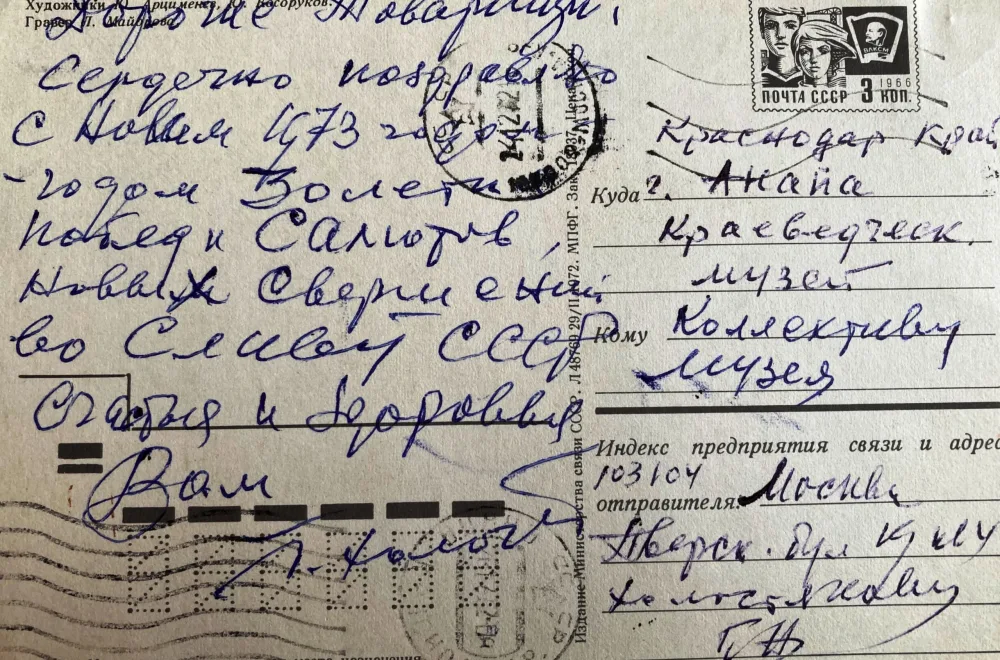 Художники Ю. Арцименев, Ю. Косоруков.
Гравер Л. Майорова
Дорогие Товарищи,
Сердечно поздравляю
с Новым 1973 годом
-годом 50летия
побед и Салютов,
Новых Свершений
во Славу СССР
Счастья и Здоровья
Вам
Г. Холост
ПОЧТА СССР 3 КОП.
1966
ВЛКСМ
Издание Министерства связи СССР. Л48769 29/II 1972. МПФГ. Зак.
Краснодар Край
Куда г. Анапа
Краеведческ.
музей
Кому Коллективу
Музея
Индекс предприятия связи и адрес
103104
отправителя: Москва
Тверск. бул
Холостякову
Г.Н